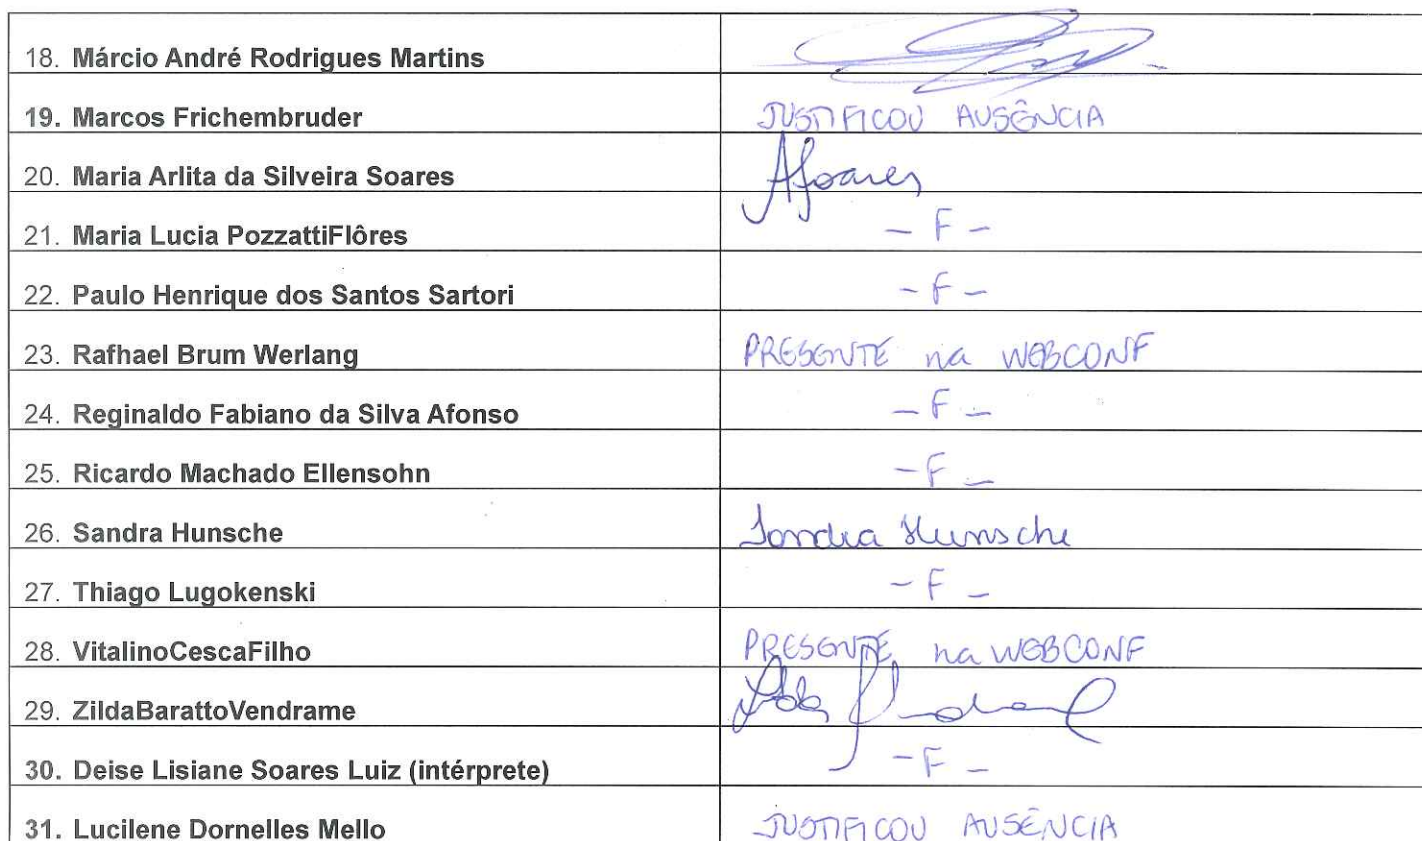 18. Márcio André Rodrigues Martins
19. Marcos Frichembruder JUSTIFICOU AUSÊNCIA
20. Maria Arlita da Silveira Soares ASoares
21. Maria Lucia PozzattiFlôres – F –
22. Paulo Henrique dos Santos Sartori – F –
23. Rafhael Brum Werlang PRESENTE na WEBCONF
24. Reginaldo Fabiano da Silva Afonso – F –
25. Ricardo Machado Ellensohn – F –
26. Sandra Hunsche Sandra Hunsche
27. Thiago Lugokenski – F –
28. VitalinoCescaFilho PRESENTE na WEBCONF
29. ZildaBarattoVendrame
30. Deise Lisiane Soares Luiz (intérprete) – F –
31. Lucilene Dornelles Mello JUSTIFICOU AUSÊNCIA